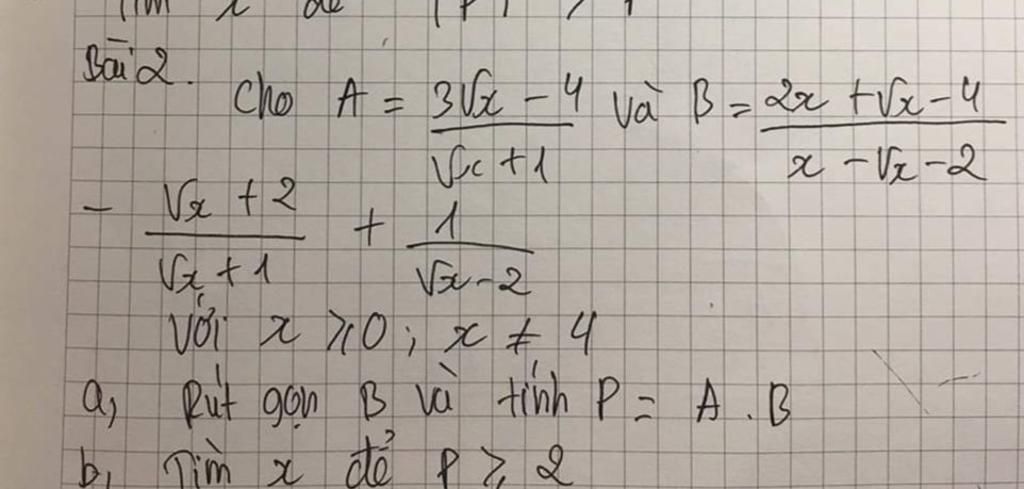 Tìm x để |P| > 1
Bài 2.
Cho A = (3√x - 4)/(√x + 1) và B = (2x + √x - 4)/(x - √x - 2)
- (√x + 2)/(√x + 1) + 1/(√x - 2)
Với x ≥ 0 ; x ≠ 4
a, Rút gọn B và tính P = A . B
b, Tìm x để P ≥ 2